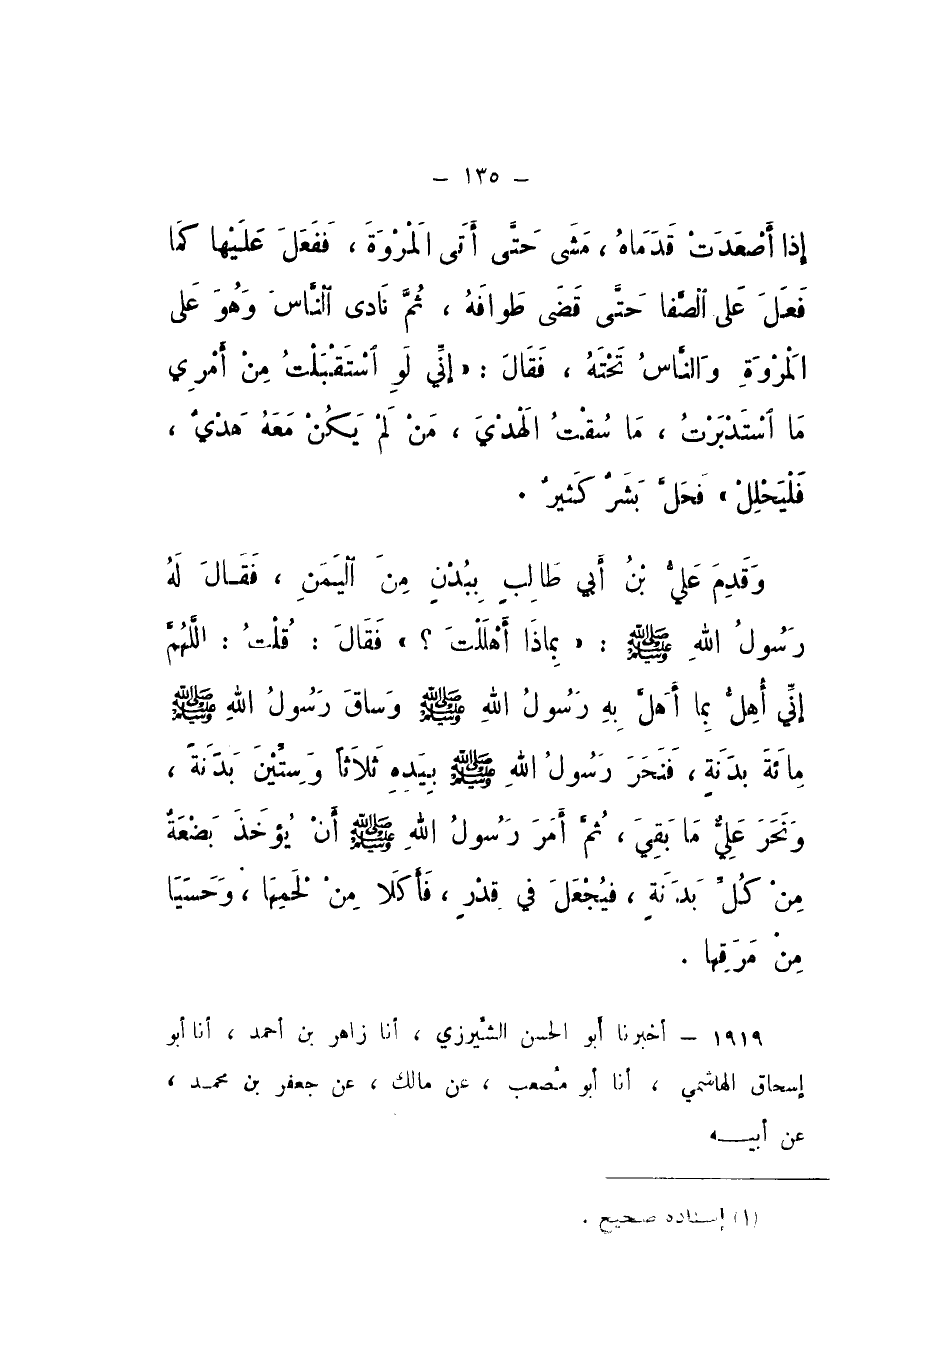 – ١٣٥ –
إذا أَصْعَدَتْ قَدَمَاهُ ، مَشَى حَتَّى أَتَى المَرْوَةَ ، فَفَعَلَ عَلَيْها كَمَا
فَعَلَ عَلى ٱلصَّفا حَتَّى قَضَى طَوافَهُ ، ثُمَّ نَادى ٱلنَّاسَ وَهُوَ عَلى
المَرْوَةِ وَالنَّاسُ تَحْتَهُ ، فَقَالَ : « إنِّي لَوِ ٱسْتَقْبَلْتُ مِنْ أَمْرِي
مَا ٱسْتَدْبَرْتُ ، مَا سُقْتُ الهَدْيَ ، مَنْ لَمْ يَكُنْ مَعَهُ هَدْيٌ ،
فَلْيَحْلِلْ » فَحَلَّ بَشَرٌ كَثيرٌ .
وَقَدِمَ عَليُّ بْنُ أَبي طَالِبٍ بِبُدْنٍ مِنَ ٱليَمَنِ ، فَقَالَ لَهُ
رَسُولُ اللهِ ﷺ : « بِماذَا أَهْلَلْتَ ؟ » فَقَالَ : قُلْتُ : اللَّهُمَّ
إنِّي أُهِلُّ بِما أَهَلَّ بِهِ رَسُولُ اللهِ ﷺ وَساقَ رَسُولُ اللهِ ﷺ
مِائَةَ بدَنَةٍ ، فَنَحَرَ رَسُولُ اللهِ ﷺ بِيَدِهِ ثَلاثاً وَسِتِّيْنَ بَدَنَةً ،
وَنَحَرَ عَلِيٌّ مَا بَقِيَ ، ثُمَّ أَمَرَ رَسُولُ اللهِ ﷺ أَنْ يُؤخَذَ بَضْعَةٌ
مِنْ كُلِّ بَدَنَةٍ ، فيُجْعَلَ في قِدْرٍ ، فَأَكَلَا مِنْ لَحْمِهَا ، وَحَسَيَا
مِنْ مَرَقِها .
١٩١٩ – أخبرنا أبو الحسن الشِّيرزي ، أنا زاهر بن أحمد ، أنا أبو
إسحاق الهاشمي ، أنا أبو مُصعب ، عن مالك ، عن جعفر بن محمد ،
عن أبيه
(١) إسناده صحيح .